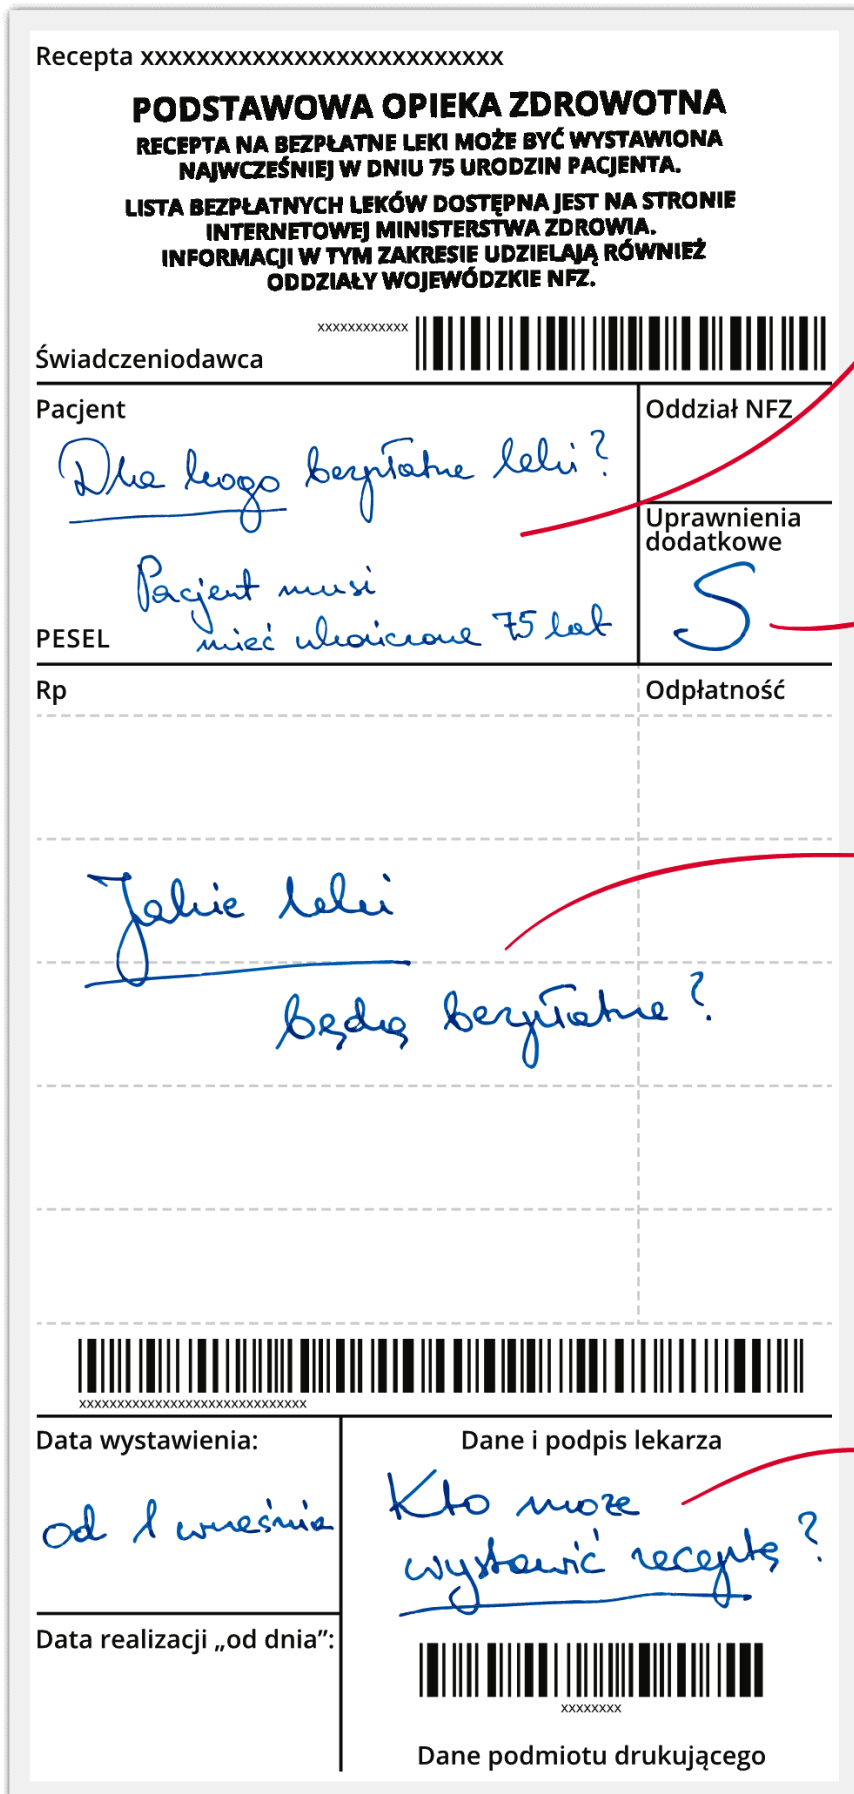 Recepta xxxxxxxxxxxxxxxxxxxxxxxxxx
PODSTAWOWA OPIEKA ZDROWOTNA
RECEPTA NA BEZPŁATNE LEKI MOŻE BYĆ WYSTAWIONA
NAJWCZEŚNIEJ W DNIU 75 URODZIN PACJENTA.
LISTA BEZPŁATNYCH LEKÓW DOSTĘPNA JEST NA STRONIE
INTERNETOWEJ MINISTERSTWA ZDROWIA.
INFORMACJI W TYM ZAKRESIE UDZIELAJĄ RÓWNIEŻ
ODDZIAŁY WOJEWÓDZKIE NFZ.
xxxxxxxxxxxx
Świadczeniodawca
Pacjent
Oddział NFZ
Dla kogo bezpłatne leki?
Uprawnienia
dodatkowe
S
Pacjent musi
mieć ukończone 75 lat
PESEL
Rp
Odpłatność
Jakie leki
będą bezpłatne?
xxxxxxxxxxxxxxxxxxxxxxxxxxxxxx
Data wystawienia:
od 1 września
Dane i podpis lekarza
Kto może
wystawić receptę?
Data realizacji „od dnia”:
xxxxxxxx
Dane podmiotu drukującego